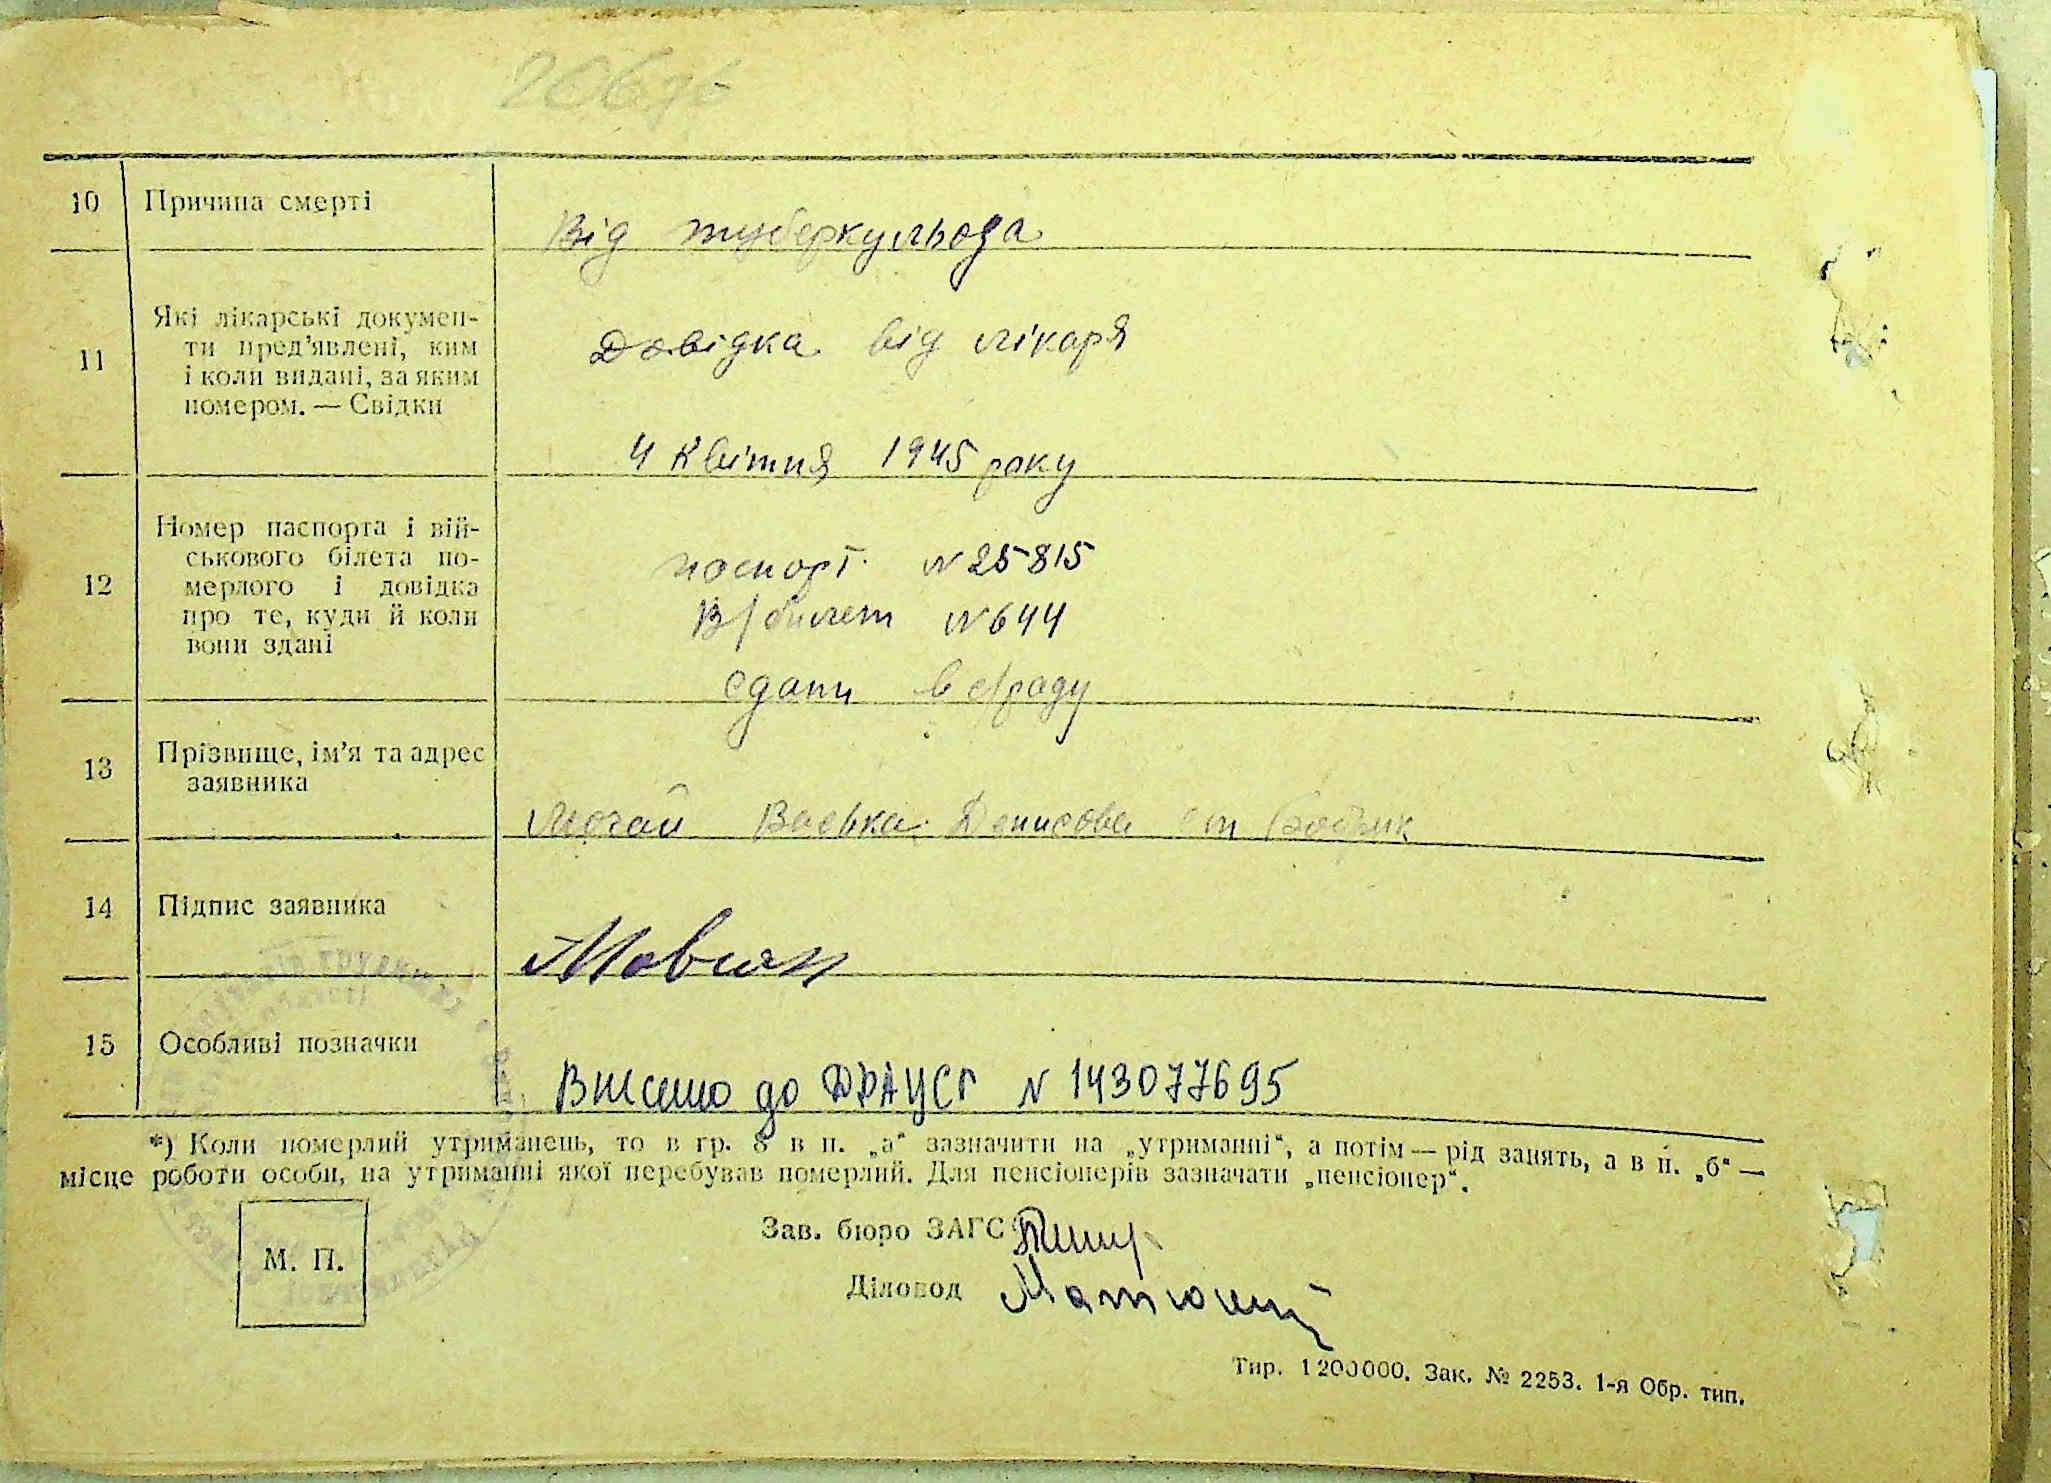 10 Причина смерті
Від туберкульоза
11 Які лікарські докумен-
ти пред’явлені, ким
і коли видані, за яким
номером. — Свідки
Довідка від лікаря
4 Квітня 1945 року
12 Номер паспорта і вій-
ськового білета по-
мерлого і довідка
про те, куди й коли
вони здані
паспорт N 25815
В/билет N 644
сдани в с/раду
13 Прізвище, ім’я та адрес
заявника
Васька Денисова
14 Підпис заявника
15 Особливі позначки
Внесено до ДРАЦСГ N 143077695
*) Коли померлий утриманець, то в гр. 8 в п. „а“ зазначити на „утриманні“, а потім — рід занять, а в п. „б“ —
місце роботи особи, на утриманні якої перебував померлий. Для пенсіонерів зазначати „пенсіонер“.
М. П.
Зав. бюро ЗАГС
Діловод
Тир. 1200000. Зак. № 2253. 1-я Обр. тип.